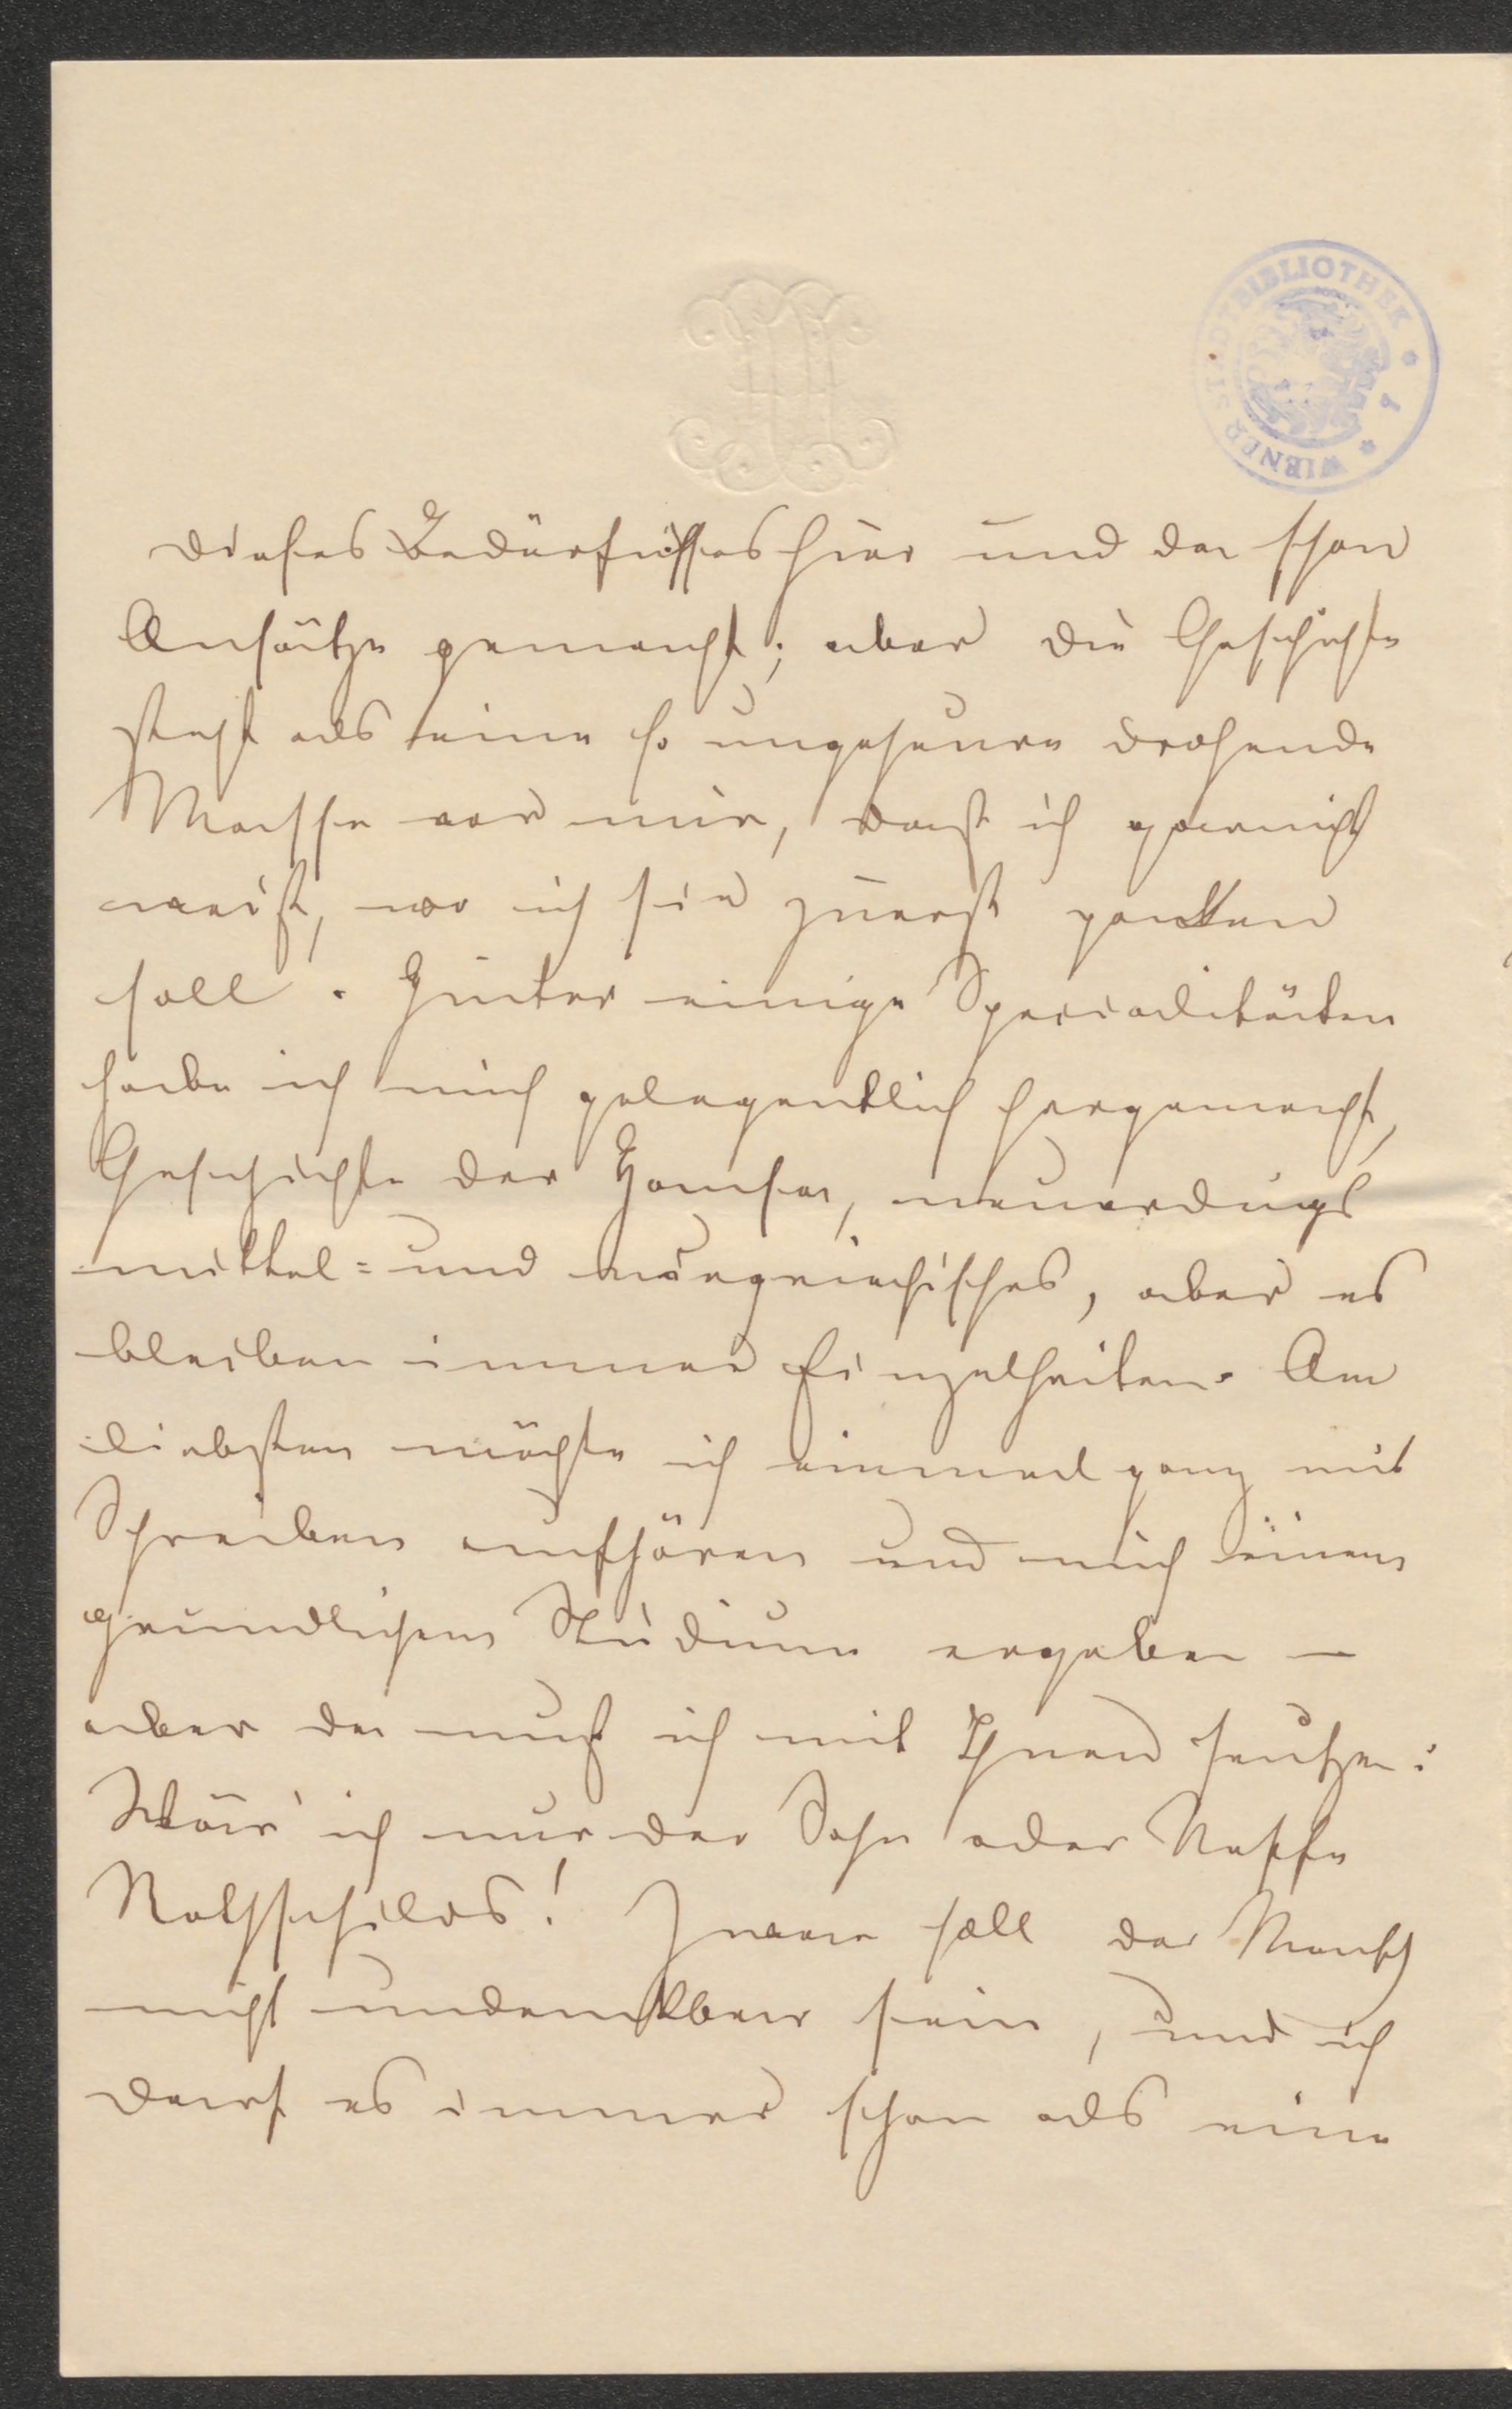 WIENER STADTBIBLIOTHEK
dieses Bedürfnisses hier und da schon
Ansätze gemacht; aber die Geschichte
steht als eine so ungeheure drohende
Masse vor mir, daß ich garnicht
weiß, wo ich sie zuerst packen
soll. Hinter einige Specialitäten
habe ich mich gelegentlich hergemacht,
Geschichte der Hansa, neuerdings
mittel- und neugriechisches, aber es
bleiben immer Einzelheiten. Am
liebsten möchte ich einmal ganz mit
Schreiben aufhören und mich einem
gründlichem Studium ergeben —
aber da muß ich mit Ihnen seufzen:
Wär' ich nur der Sohn oder Neffe
Rothschilds! Zwar soll der Mensch
nicht undankbar sein, und ich
darf es immer schon als eine